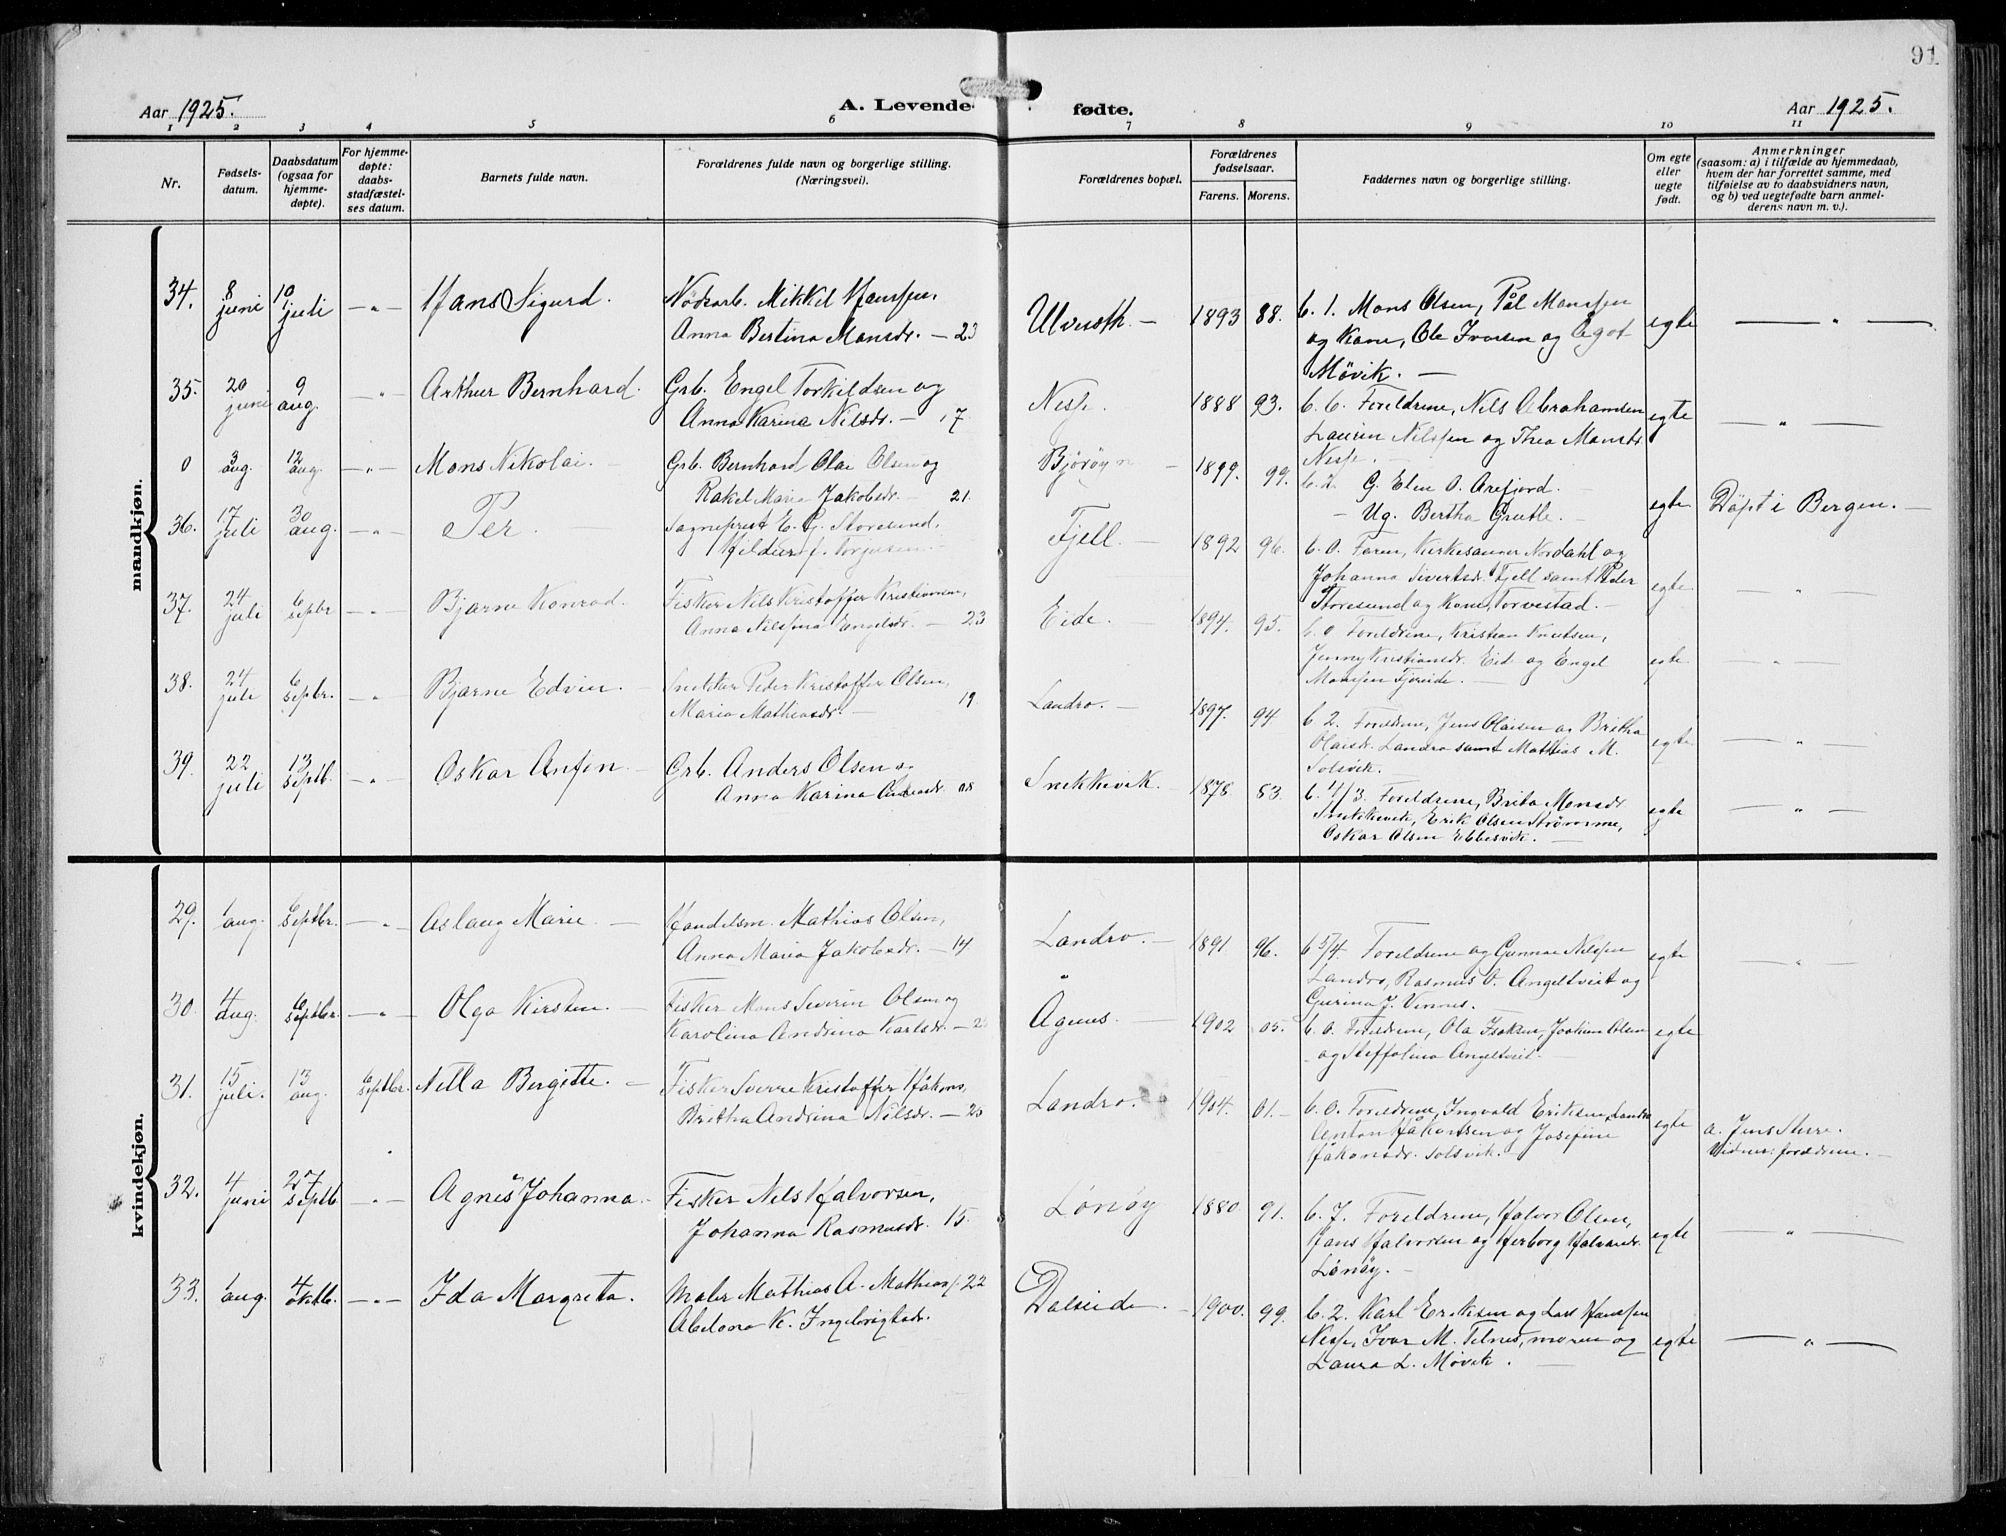 91
Aar 1925.
A. Levende
fødte.
Aar 1925.
1 2 3 4 5 6 7 8 9 10 11
Nr.
Fødsels-
datum.
Daabsdatum
(ogsaa for
hjemme-
døpte).
For hjemme-
døpte:
daabs-
stadfæstel-
ses datum.
Barnets fulde navn.
Forældrenes fulde navn og borgerlige stilling.
(Næringsvei).
Forældrenes bopæl.
Forældrenes
fødselsaar.
Farens. Morens.
Faddernes navn og borgerlige stilling.
Om egte
eller
uegte
født.
Anmerkninger
(saasom: a) i tilfælde av hjemmedaab,
hvem der har forrettet samme, med
tilføielse av to daabsvidners navn,
og b) ved uegtefødte barn anmel-
derens navn m. v.).
mandkjøn.
34. 8 juni 10 juli — " — Hans Sigurd. Nödsarb. Mikkel Hanssen,
Anna Bertina Monsdr. — 23
Ulveseth. — 1893 88. b. 1. Mons Olsen, Pål Monssen
og Kone, Ole Iversen og Ågot
Møvik. —
egte — " —
35. 20 juni 9 aug. — " Arthur Bernhard. Grb. Engel Torkildsen og
Anna Karina Nilsdr. — 17
Nesse. 1888 93. b. 6. Foreldrene, Nils Abrahamsen
Laurin Nilssen og Thea Monsdr.
Nesse. —
egte — " —
0 3 aug. 12 aug. — " — Mons Nikolai. — Grb. Bernhard Olai Olsen og
Rakel Maria Jakobsdr. — 21.
Bjøröyn — 1899. 99. b. 2. G. Elen O. Arefjord. —
— Ug. Bertha Grutle. —
egte Döpt i Bergen. —
36. 17 juli 30 aug. — " — Per. Sogneprest E. G. Storesund,
Hildur f. Torjusen. —
Fjell. — 1892 96. b. 0. Faren, Kirkesanger Nordahl og
Johanna Sivertsdr. Fjell samt Peder
Storesund og kone, Torvestad. —
egte. — " —
37. 24 juli 6 septbr — " — Bjarne Konrad. Fisker Nils Kristoffer Kristiansen,
Anna Nilssina Engelsdr. — 23
Eide. — 1894. 95. b. 0 Foreldrene, Kristian Knutsen,
Jenny Kristiansdr. Eide og Engel
Monssen Fjæreide. —
egte — " —
38. 24 juli 6 septbr. — " Bjarne Edvin — Snekker Peder Kristoffer Olsen,
Maria Mathiasdr. — 19
Landro. — 1897. 94. b. 2. Foreldrene, Jens Olaisen og Britha
Olaisdr. Landro samt Mathias M.
Solsvik. —
egte — " —
39. 22 juli 13 septb. — " Oskar Anfin — Grb. Anders Olsen og
Anna Karina 08
Snekkevik. 1878 83. b. 4/3. Foreldrene, Brita Monsdr.
Snekkevik, Erik Olsen Strömme,
Oskar Olsen Ebbesvik. —
egte — " —
kvindekjøn.
29. 1 aug. 6 septbr. — " — Aslaug Marie — Handelsm. Mathias Olsen,
Anna Maria Jakobsdr. — 14
Landro. — 1891 96. b 5/4. Foreldrene og Gunnar Nilssen
Landro, Rasmus O. Angeltveit og
Gurina J. Vinnes.
egte — " —
30. 4 aug. 6 septbr. — " — Olga Kirsten. — Fisker Mons Severin Olsen og
Karolina Andrina Karlsdr. — 25
Ågnes. — 1902 05. b. 0. Foreldrene, Ola Isaksen, Joakim Olsen
og Steffolina Angeltveit. —
egte
31. 15 juli. 13 aug. 6 septbr. Nella Bergitte. — Fisker Sverre Kristoffer Håkons.
Britha Andrina Nilsdr. — 25
Landro. 1904. 01. — b. 0. Foreldrene, Ingvald Eriksen Landro
Anton Håkonsen og Josefine
Håkonsdr. Solsvik. —
egte a. Jens Sterre.
Vidner: forældrene. —
32. 4 juni 27 septb. — " — Agnes Johanna. — Fisker Nils Halvorsen,
Johanna Rasmusdr. 15.
Lönöy 1880. 91. b. 7. Foreldrene, Halvor Olsen,
Hans Halvorsen og Herborg Halvorsdr.
Lönöy. —
egte — " —
33. 1 aug. 4 oktb. — " — Ida Margreta. Maler Mathias A. Mathiass. 22
Abelona K. Ingebrigtsdr.
Dalseide. — 1900. 99. b. 2. Karl Eriksen og Lars Hanssen
Nesse, Ivar M. Telnes, moren og
Laura L. Møvik. —
egte — " —